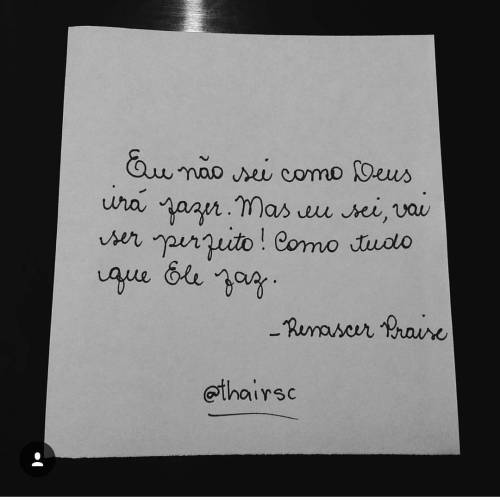 Eu não sei como Deus
irá fazer. Mas eu sei, vai
ser perfeito! Como tudo
que Ele faz.
- Renascer Praise
@thairsc